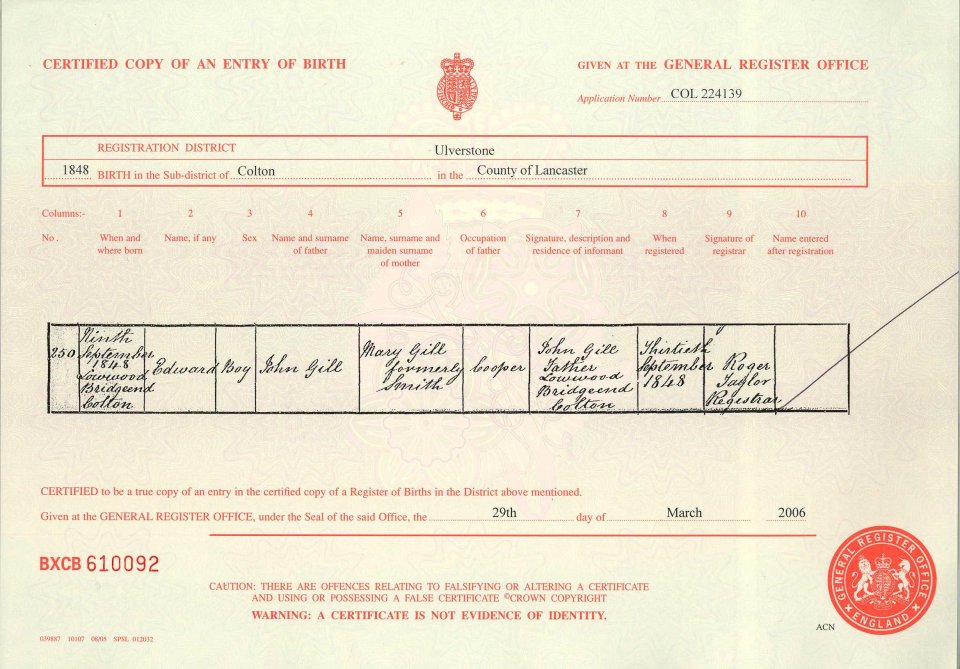 CERTIFIED COPY OF AN ENTRY OF BIRTH
GIVEN AT THE GENERAL REGISTER OFFICE
Application Number COL 224139
REGISTRATION DISTRICT Ulverstone
1848 BIRTH in the Sub-district of Colton in the County of Lancaster
Columns:- 1 2 3 4 5 6 7 8 9 10
No. When and where born Name, if any Sex Name and surname of father Name, surname and maiden surname of mother Occupation of father Signature, description and residence of informant When registered Signature of registrar Name entered after registration
250
Ninth
September
1848
Lowwood
Bridgeend
Colton
Edward
Boy
John Gill
Mary Gill
formerly
Smith
Cooper
John Gill
Father
Lowwood
Bridgeend
Colton
Thirtieth
September
1848
Roger
Taylor
Registrar
CERTIFIED to be a true copy of an entry in the certified copy of a Register of Births in the District above mentioned.
Given at the GENERAL REGISTER OFFICE, under the Seal of the said Office, the 29th day of March 2006
BXCB 610092
CAUTION: THERE ARE OFFENCES RELATING TO FALSIFYING OR ALTERING A CERTIFICATE
AND USING OR POSSESSING A FALSE CERTIFICATE ©CROWN COPYRIGHT
WARNING: A CERTIFICATE IS NOT EVIDENCE OF IDENTITY.
GENERAL REGISTER OFFICE
ENGLAND
ACN
039887 10107 08/05 SPSL 012032